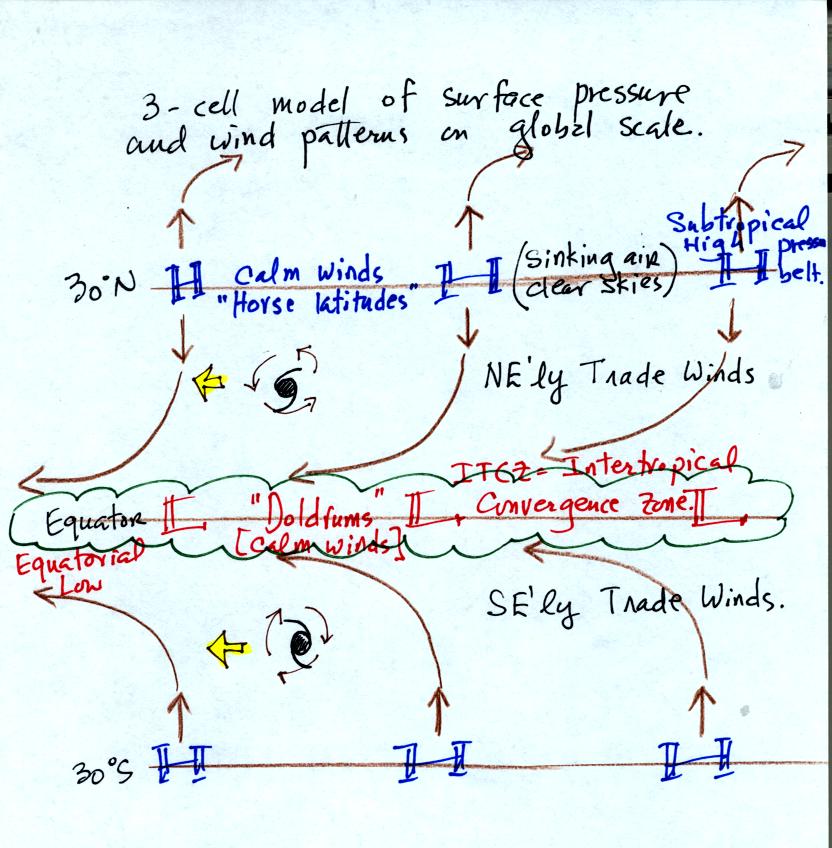 3-cell model of surface pressure
and wind patterns on global scale.
Subtropical
High pressure
belt.
30°N H Calm winds H (Sinking air H
"Horse latitudes" clear skies)
NE'ly Trade Winds
ITCZ = Intertropical
Equator L "Doldrums" L Convergence Zone. L
[Calm winds]
Equatorial
Low
SE'ly Trade Winds.
30°S H H H